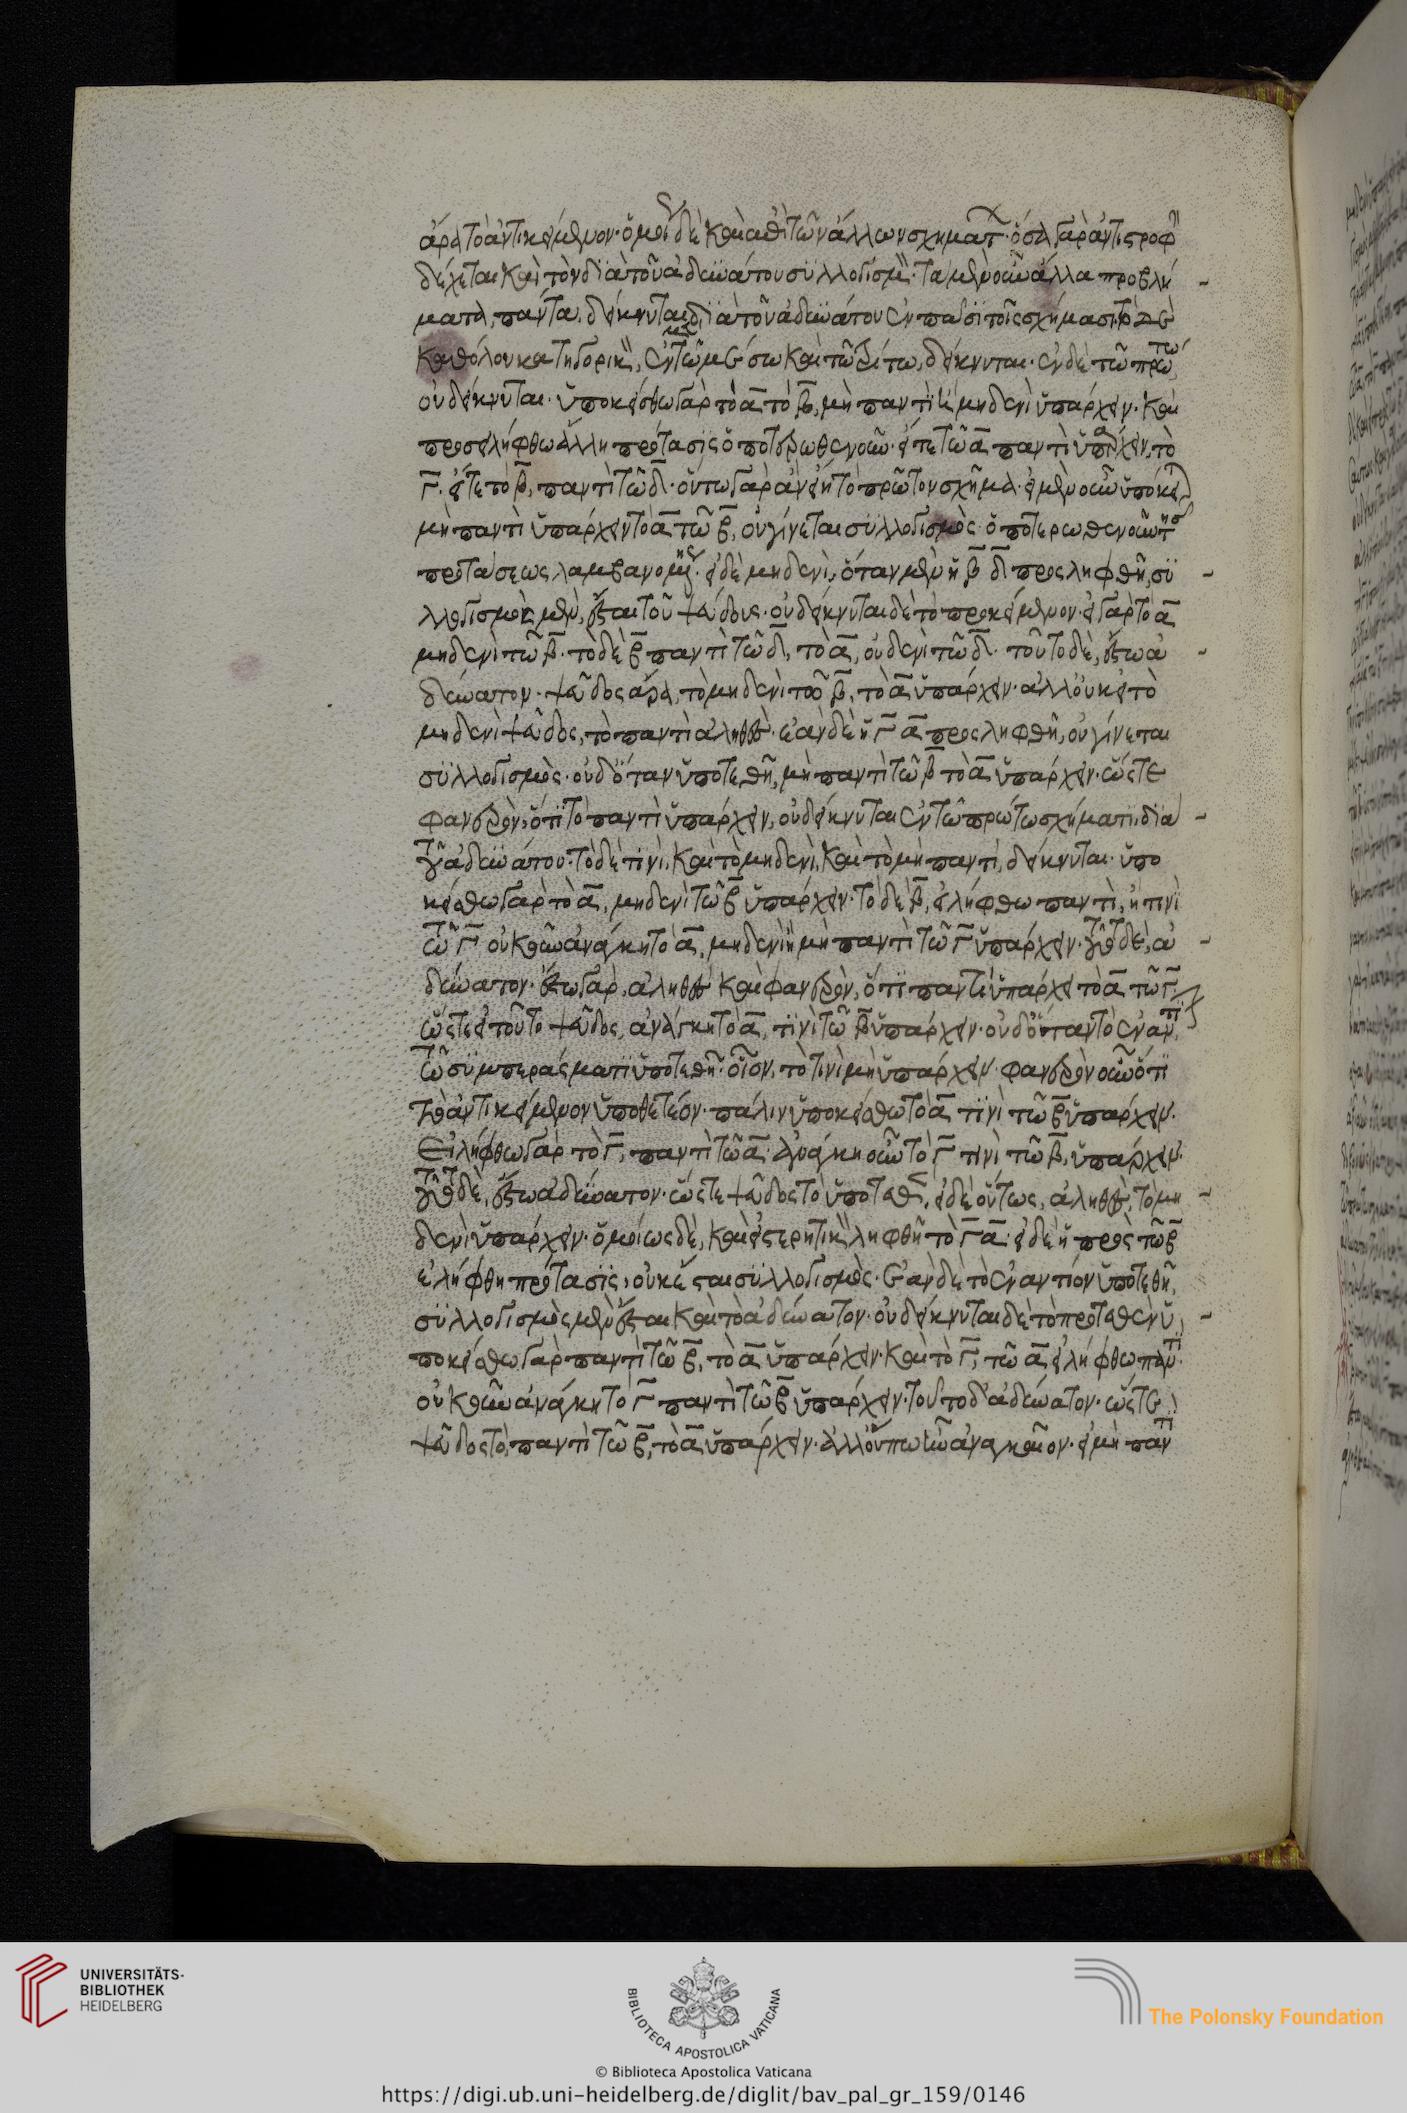 ἄρα τὸ ἀντικείμενον· ὁμοίως δὲ καὶ ἐπὶ τῶν ἄλλων σχημάτων· ὅσα γὰρ ἀντιστροφὴν
δέχεται καὶ τὸν διὰ τοῦ ἀδυνάτου συλλογισμόν· τὰ μὲν οὖν ἄλλα προβλή
ματα, πάντα δείκνυται διὰ τοῦ ἀδυνάτου ἐν πᾶσι τοῖς σχήμασι, τὸ δὲ
καθόλου κατηγορικὸν, ἐν μὲν τῷ μέσω καὶ τῷ τρίτω, δείκνυται· ἐν δὲ τῷ πρώτω,
οὐ δείκνυται· ὑποκείσθω γὰρ τὸ α τὸ β, μὴ παντὶ ἢ μηδενὶ ὑπάρχειν· καὶ
προσειλήφθω ἄλλη πρότασις ὁποτερωθενοῦν· εἴτε τῷ α παντὶ ὑπάρχειν, τὸ
γ· εἴτε τὸ β, παντὶ τῷ δ· οὕτω γὰρ ἂν εἴη τὸ πρῶτον σχῆμα· εἰ μὲν οὖν ὑπόκει
μὴ παντὶ ὑπάρχειν τὸ α τῷ β, οὐ γίνεται συλλογισμὸς ὁποτερωθενοῦν τῆς
προτάσεως λαμβανομένης· εἰ δὲ μηδενὶ, ὅταν μὲν ἡ β δ προσληφθῆ, συ
λλογισμὸς μὲν, ἔσται τοῦ ψεύδους· οὐ δείκνυται δὲ τὸ προκείμενον· εἰ γὰρ τὸ α
μηδενὶ τῷ β· τὸ δὲ β παντὶ τῷ δ, τὸ α, οὐδενὶ τῷ δ· τοῦτο δὲ, ἔστω ἀ
δύνατον· ψεῦδος ἄρα, τὸ μηδενὶ τῷ β, τὸ α ὑπάρχειν· ἀλλ' οὐκ εἰ τὸ
μηδενὶ ψεῦδος, τὸ παντὶ ἀληθές· ἐὰν δὲ ἡ γ α προσληφθῆ, οὐ γίνεται
συλλογισμός· οὐδ' ὅταν ὑποτεθῆ, μὴ παντὶ τῷ β τὸ α ὑπάρχειν· ὥστε
φανερὸν, ὅτι τὸ παντὶ ὑπάρχειν, οὐ δείκνυται ἐν τῷ πρώτω σχήματι, διὰ
τοῦ ἀδυνάτου· τὸ δέ τινι, καὶ τὸ μηδενὶ, καὶ τὸ μὴ παντὶ, δείκνυται· ὑπο
κείσθω γὰρ τὸ α, μηδενὶ τῷ β ὑπάρχειν· τὸ δὲ β, εἰλήφθω παντὶ, ἢ τινὶ
τῷ γ οὐκοῦν ἀνάγκη τὸ α, μηδενὶ ἢ μὴ παντὶ τῷ γ ὑπάρχειν· τοῦτο δὲ, ἀ
δύνατον· ἔστω γὰρ, ἀληθὲς καὶ φανερὸν, ὅτι παντὶ ὑπάρχει τὸ α τῷ γ
ὥστε εἰ τοῦτο ψεῦδος, ἀνάγκη τὸ α, τινὶ τῷ β ὑπάρχειν· οὐδ' ὅταν τὸ ἐναντίον
τῷ συμπεράσματι ὑποτεθῆ· οἷον, τὸ τινὶ μὴ ὑπάρχειν· φανερὸν οὖν ὅτι
τὸ ἀντικείμενον ὑποθετέον· πάλιν ὑποκείσθω τὸ α τινὶ τῷ β ὑπάρχειν·
εἰλήφθω γὰρ τὸ γ, παντὶ τῷ α· ἀνάγκη οὖν τὸ γ τινὶ τῷ β, ὑπάρχειν·
τοῦτο δὲ, ἔστω ἀδύνατον· ὥστε ψεῦδος τὸ ὑποτεθέν, εἰ δὲ οὕτως, ἀληθὲς, τὸ μη
δενὶ ὑπάρχειν· ὁμοίως δὲ, καὶ εἰ στερητικὸν ληφθῆ τὸ γ α· εἰ δὲ ἡ πρὸς τῷ β
εἰλήφθη πρότασις, οὐκ ἔσται συλλογισμός· ἐὰν δὲ τὸ ἐναντίον ὑποτεθῆ,
συλλογισμὸς μὲν ἔσται καὶ τὸ ἀδύνατον· οὐ δείκνυται δὲ τὸ προταθὲν ὑ
ποκείσθω γὰρ παντὶ τῷ β, τὸ α ὑπάρχειν· καὶ τὸ γ, τῷ α εἰλήφθω παντί·
οὐκοῦν ἀνάγκη τὸ γ παντὶ τῷ β ὑπάρχειν· τοῦτο δ' ἀδύνατον· ὥστε
ψεῦδος τὸ, παντὶ τῷ β, τὸ α ὑπάρχειν· ἀλλ' οὔπω γε ἀναγκαῖον· εἰ μὴ παντὶ
UNIVERSITÄTS-
BIBLIOTHEK
HEIDELBERG
BIBLIOTECA APOSTOLICA VATICANA
The Polonsky Foundation
© Biblioteca Apostolica Vaticana
https://digi.ub.uni-heidelberg.de/diglit/bav_pal_gr_159/0146